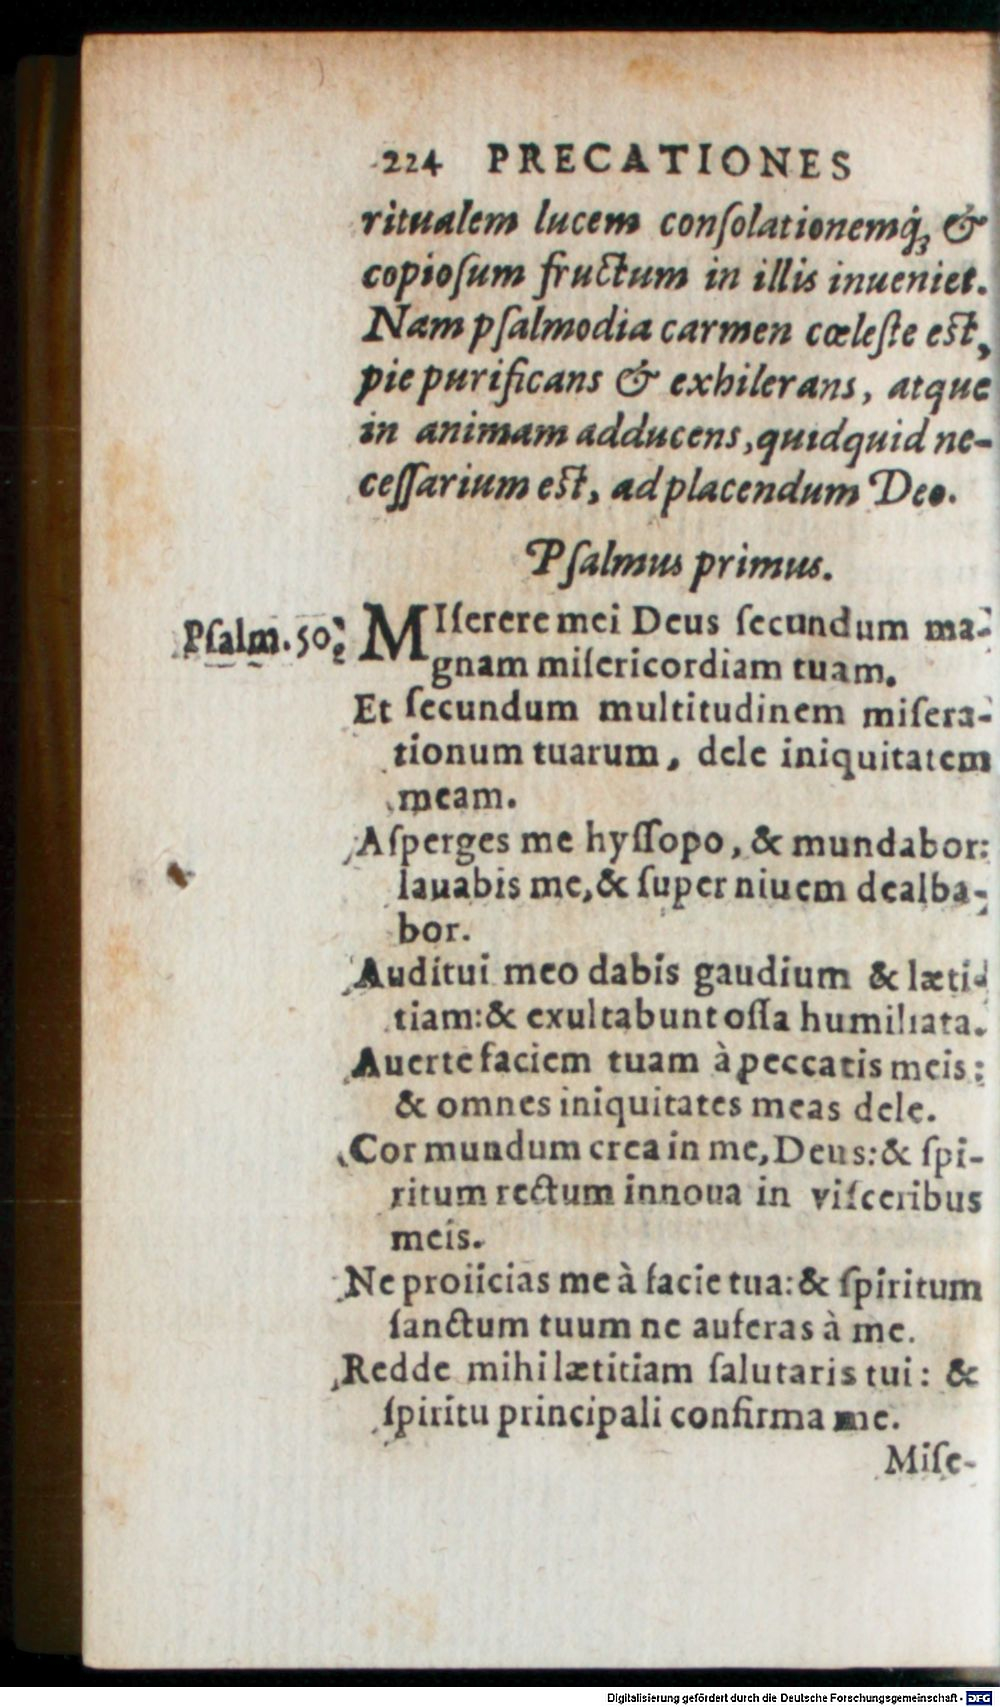 224 PRECATIONES
ritualem lucem conſolationemq́ꝫ &
copioſum fructum in illis inueniet.
Nam pſalmodia carmen cœleſte eſt,
pie purificans & exhilerans, atque
in animam adducens, quidquid ne-
ceſſarium eſt, ad placendum Deo.
Pſalmus primus.
Pſalm. 50.
MIſerere mei Deus ſecundum ma-
gnam miſericordiam tuam.
Et ſecundum multitudinem miſera-
tionum tuarum, dele iniquitatem
meam.
Aſperges me hyſſopo, & mundabor:
lauabis me, & ſuper niuem dealba-
bor.
Auditui meo dabis gaudium & læti-
tiam: & exultabunt oſſa humiliata.
Auerte faciem tuam à peccatis meis:
& omnes iniquitates meas dele.
Cor mundum crea in me, Deus: & ſpi-
ritum rectum innoua in viſceribus
meis.
Ne proiicias me à facie tua: & ſpiritum
ſanctum tuum ne auferas à me.
Redde mihi lætitiam ſalutaris tui: &
ſpiritu principali confirma me.
Miſe-
Digitalisierung gefördert durch die Deutsche Forschungsgemeinschaft - DFG